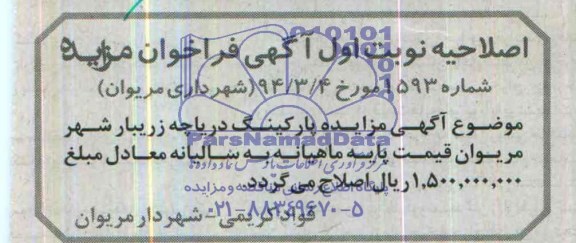 اصلاحیه نوبت اول آگهی فراخوان مزایده
شماره ۱۵۹۳ مورخ ۹۴/۳/۴ (شهرداری مریوان)
موضوع آگهی مزایده پارکینگ دریاچه زریبار شهر
مریوان قیمت پایه ماهیانه به سالیانه معادل مبلغ
۱,۵۰۰,۰۰۰,۰۰۰ ریال اصلاح می گردد.
فواد کریمی - شهردار مریوان
ParsNamadData
۰۲۱-۸۸۳۴۹۶۷۰-۵